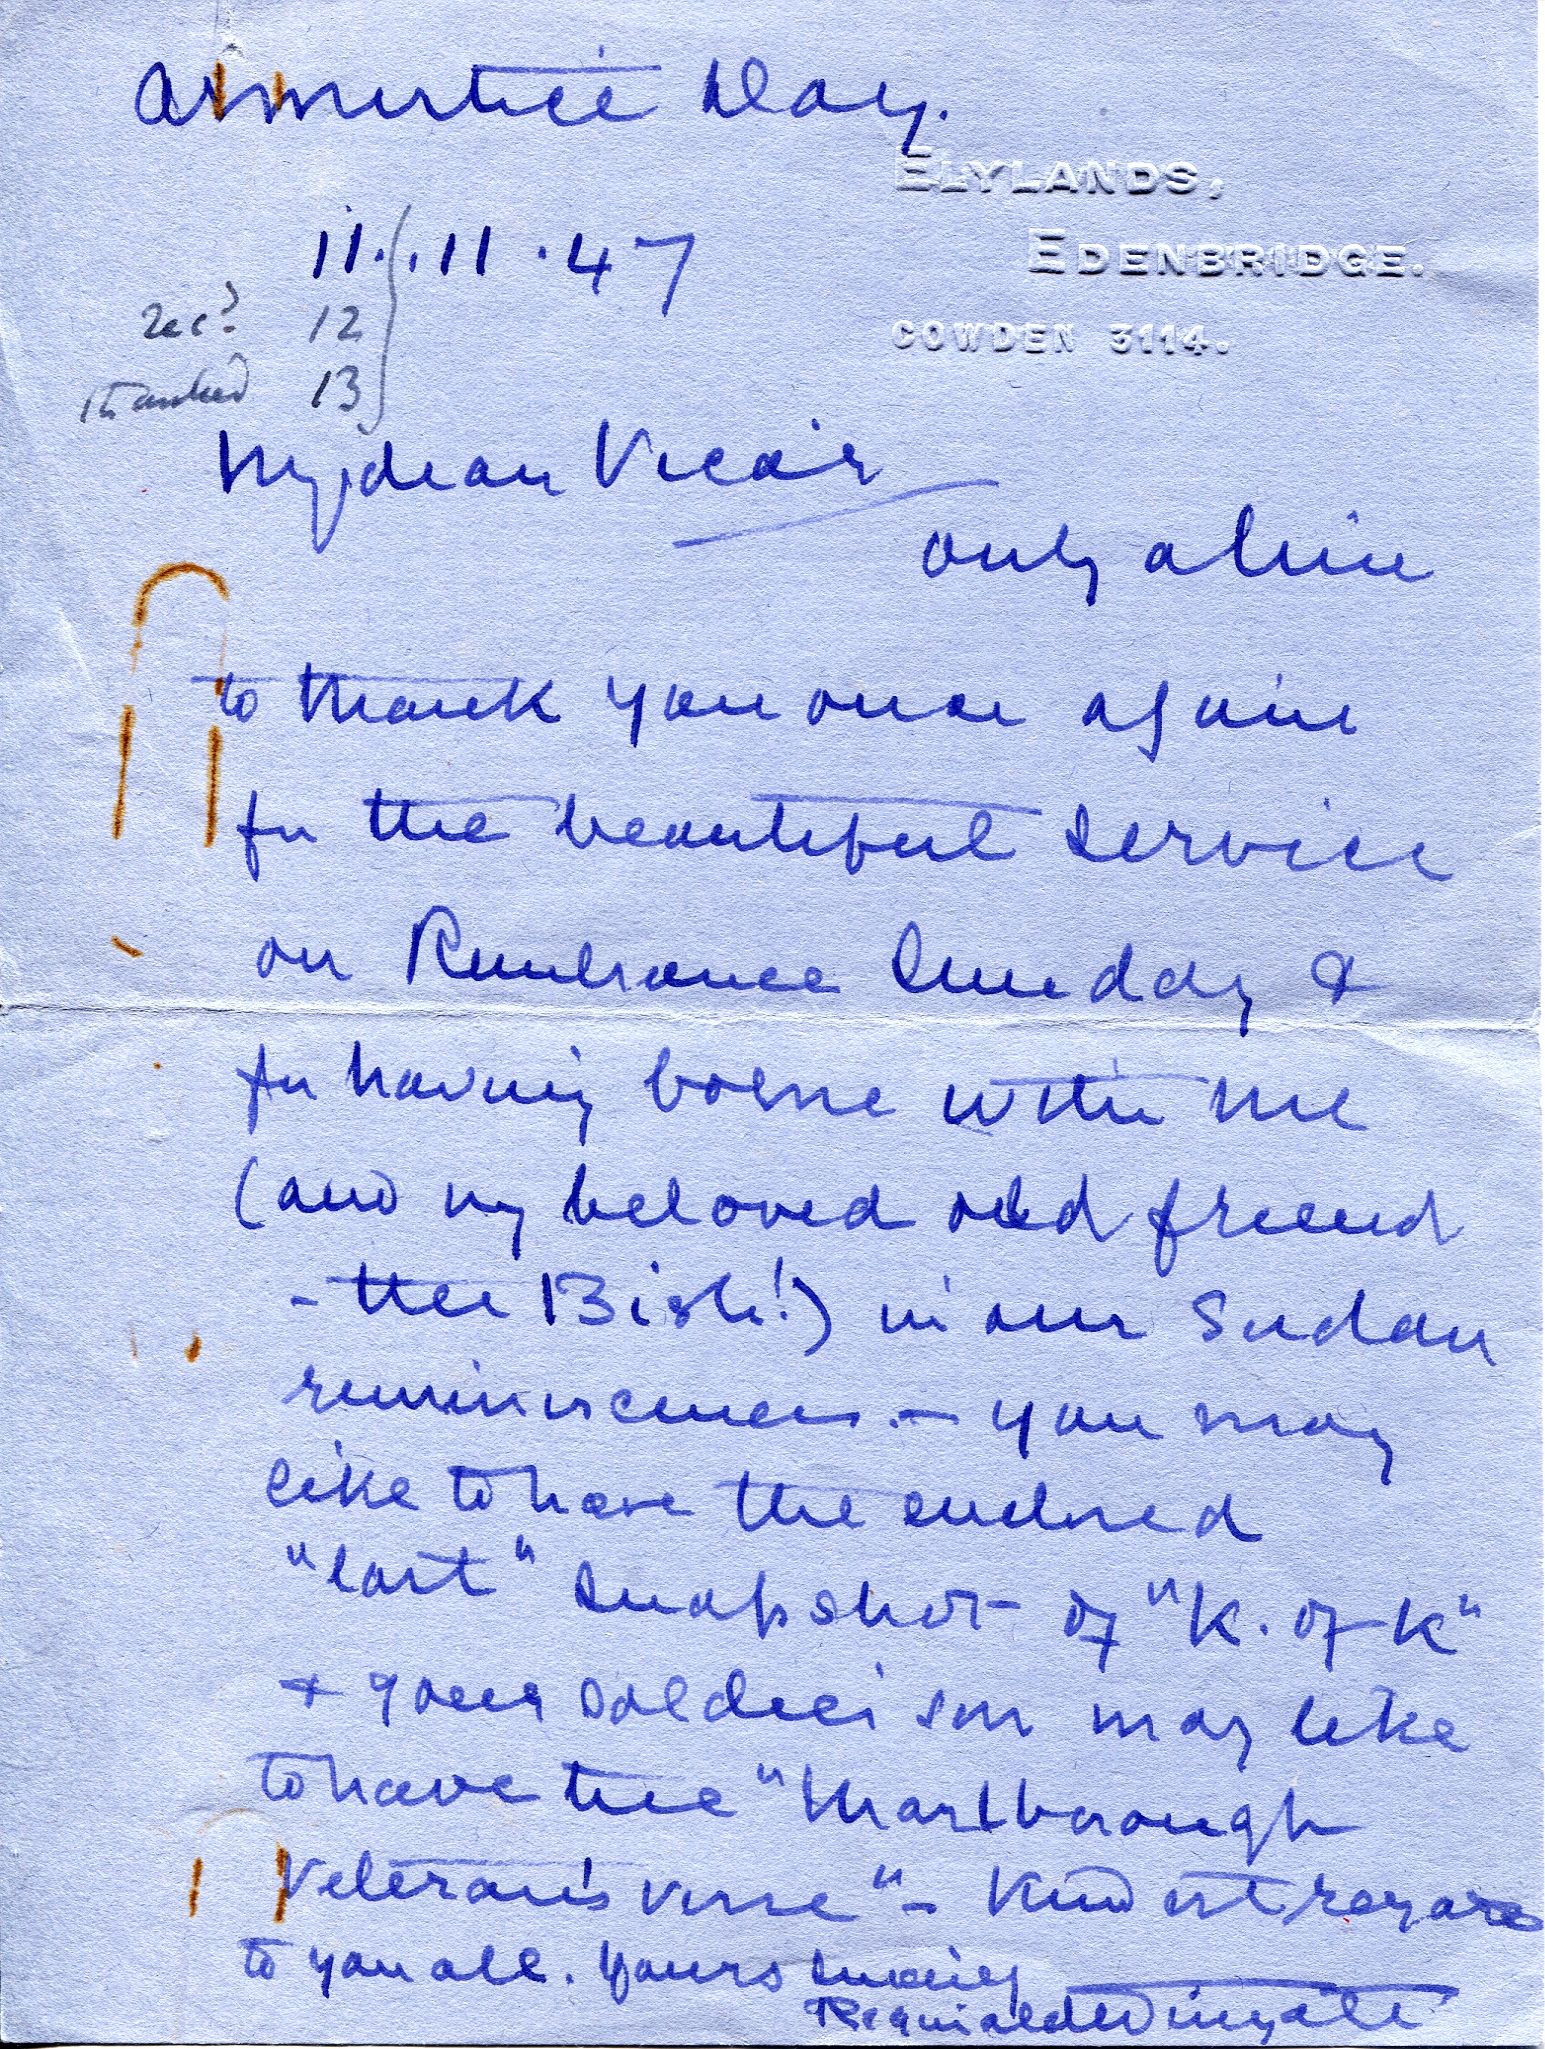 Armistice Day.
ELYLANDS,
EDENBRIDGE.
COWDEN 3114.
11.11.47
recd. 12
thanked 13
My dear Vicar
only a line
to thank you once again
for the beautiful service
on Rembrance Sunday &
for having borne with me
(and my beloved old friend
- the Bish!) in our Sudan
reminiscences. - you may
like to have the enclosed
"last" snapshot of "K. of K"
& your soldier son may like
to have the "Marlborough
Veteran's verse" - Kindest regards
to you all. Yours sincerely
Reginald Wingate